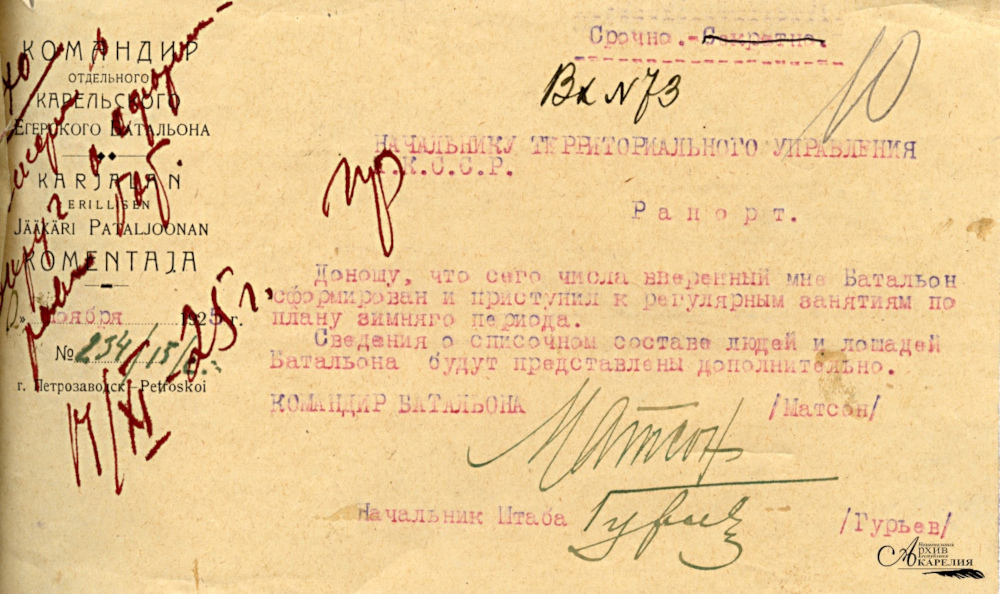 КОМАНДИР
ОТДЕЛЬНОГО
КАРЕЛЬСКОГО
ЕГЕРСКОГО БАТАЛЬОНА
KARJALAN
ERILLISEN
JÄÄKÄRI PATALJOONAN
KOMENTAJA
ноября 1925 г.
№ 234/15/
г. Петрозаводск-Petroskoi
17/XI-25 г.
Срочно.-Секретно.
Вх №73
10
НАЧАЛЬНИКУ ТЕРРИТОРИАЛЬНОГО УПРАВЛЕНИЯ
.К.С.С.Р.
Рапорт.
Доношу, что сего числа вверенный мне Батальон
сформирован и приступил к регулярным занятиям по
плану зимнего периода.
Сведения о списочном составе людей и лошадей
Батальона будут представлены дополнительно.
КОМАНДИР БАТАЛЬОНА /Матсон/
Матсон
Начальник Штаба Гурьев /Гурьев/
Национальный
АРХИВ
Республики
КАРЕЛИЯ